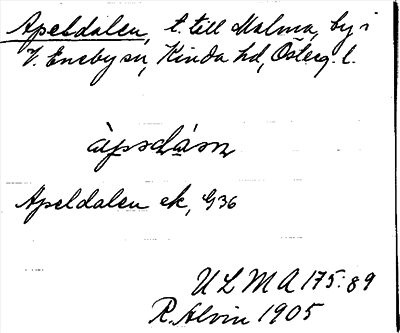 Apeldalen, t. till Malma, by i
V. Eneby sn, Kinda hd, Österg. l.
àpsdàsn
Apeldalen ek, G36
ULMA 175:89
R. Alvin 1905